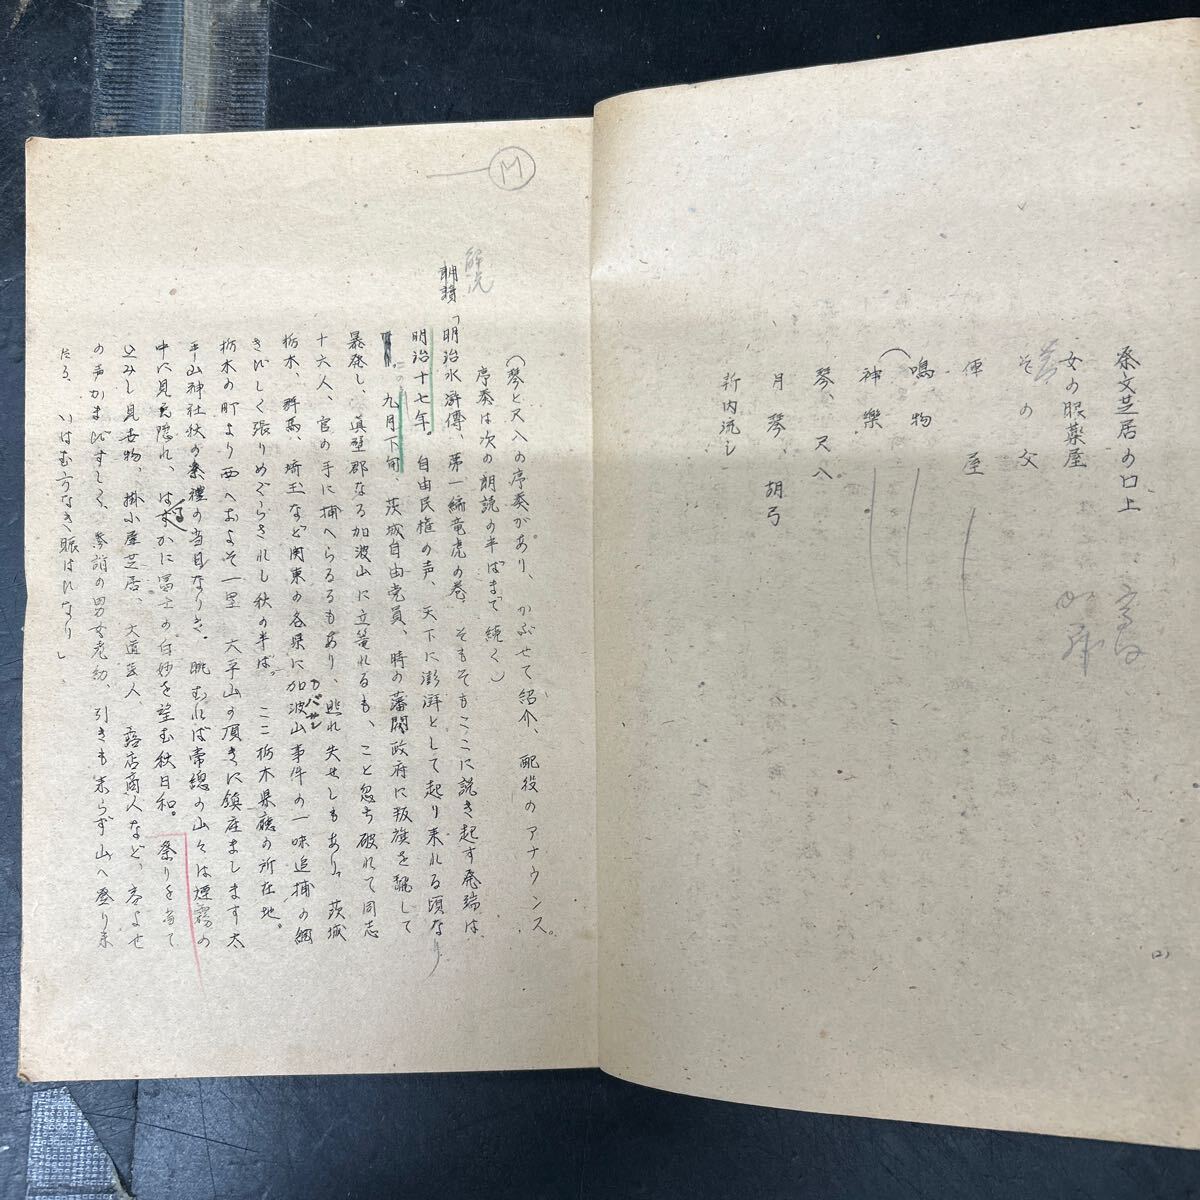 祭文芝居の口上
女の眼薬屋
その父
俥屋
鳴物
(
神樂
琴、尺八
月琴、胡弓
新内流し
(2)
M
(琴と尺八の序奏があり、かぶせて紹介、配役のアナウンス。
序奏は次の朗読の半ばまで続く)
解説
朗読「明治水滸傳、第一編竜虎の巻、そもそもここに説き起す発端は、
明治十七年。自由民権の声、天下に澎湃として起り来れる頃なり
。この九月下旬、茨城自由党員、時の藩閥政府に叛旗を飜して
暴発し、眞壁郡なる加波山に立篭れるも、こと忽ち破れて同志
十六人、官の手に捕へらるるもあり、逃れ失せしもあり。茨城
栃木、群馬、埼玉など関東の各県に加波山事件の一味追捕の網
カバサン
きびしく張りめぐらされし秋の半ば。ここ栃木県廳の所在地。
栃木の町より西へおよそ一里 大平山の頂きに鎮座まします太
平山神社秋の祭禮の当日なりき。眺むれば常總の山々は煙霧の
中に見え隠れ、はるかに富士の白妙を望む秋日和。祭りを当て
込みし見世物、掛小屋芝居、大道芸人、露店商人など、客よせ
の声かまびすしく、参詣の男女老幼、引きも来らず山へ登り来
たる、いはむ方なき賑はひなり」